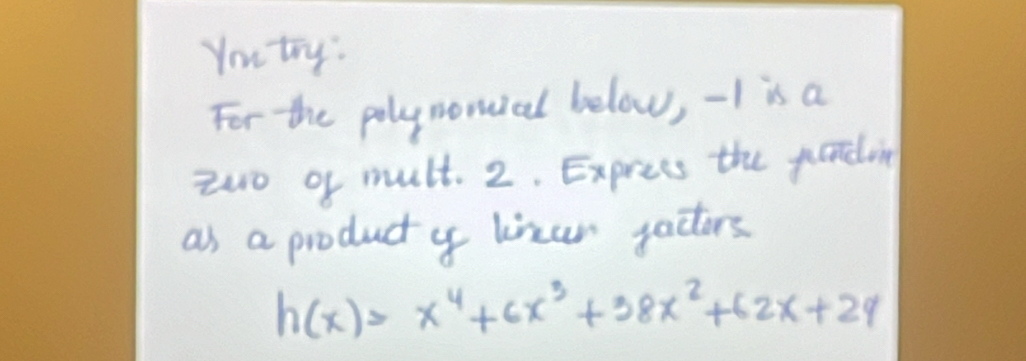 You try:
For the polynomial below, -1 is a
zero of mult. 2. Express the function
as a product of linear factors
h(x)= x⁴+6x³+38x²+62x+29